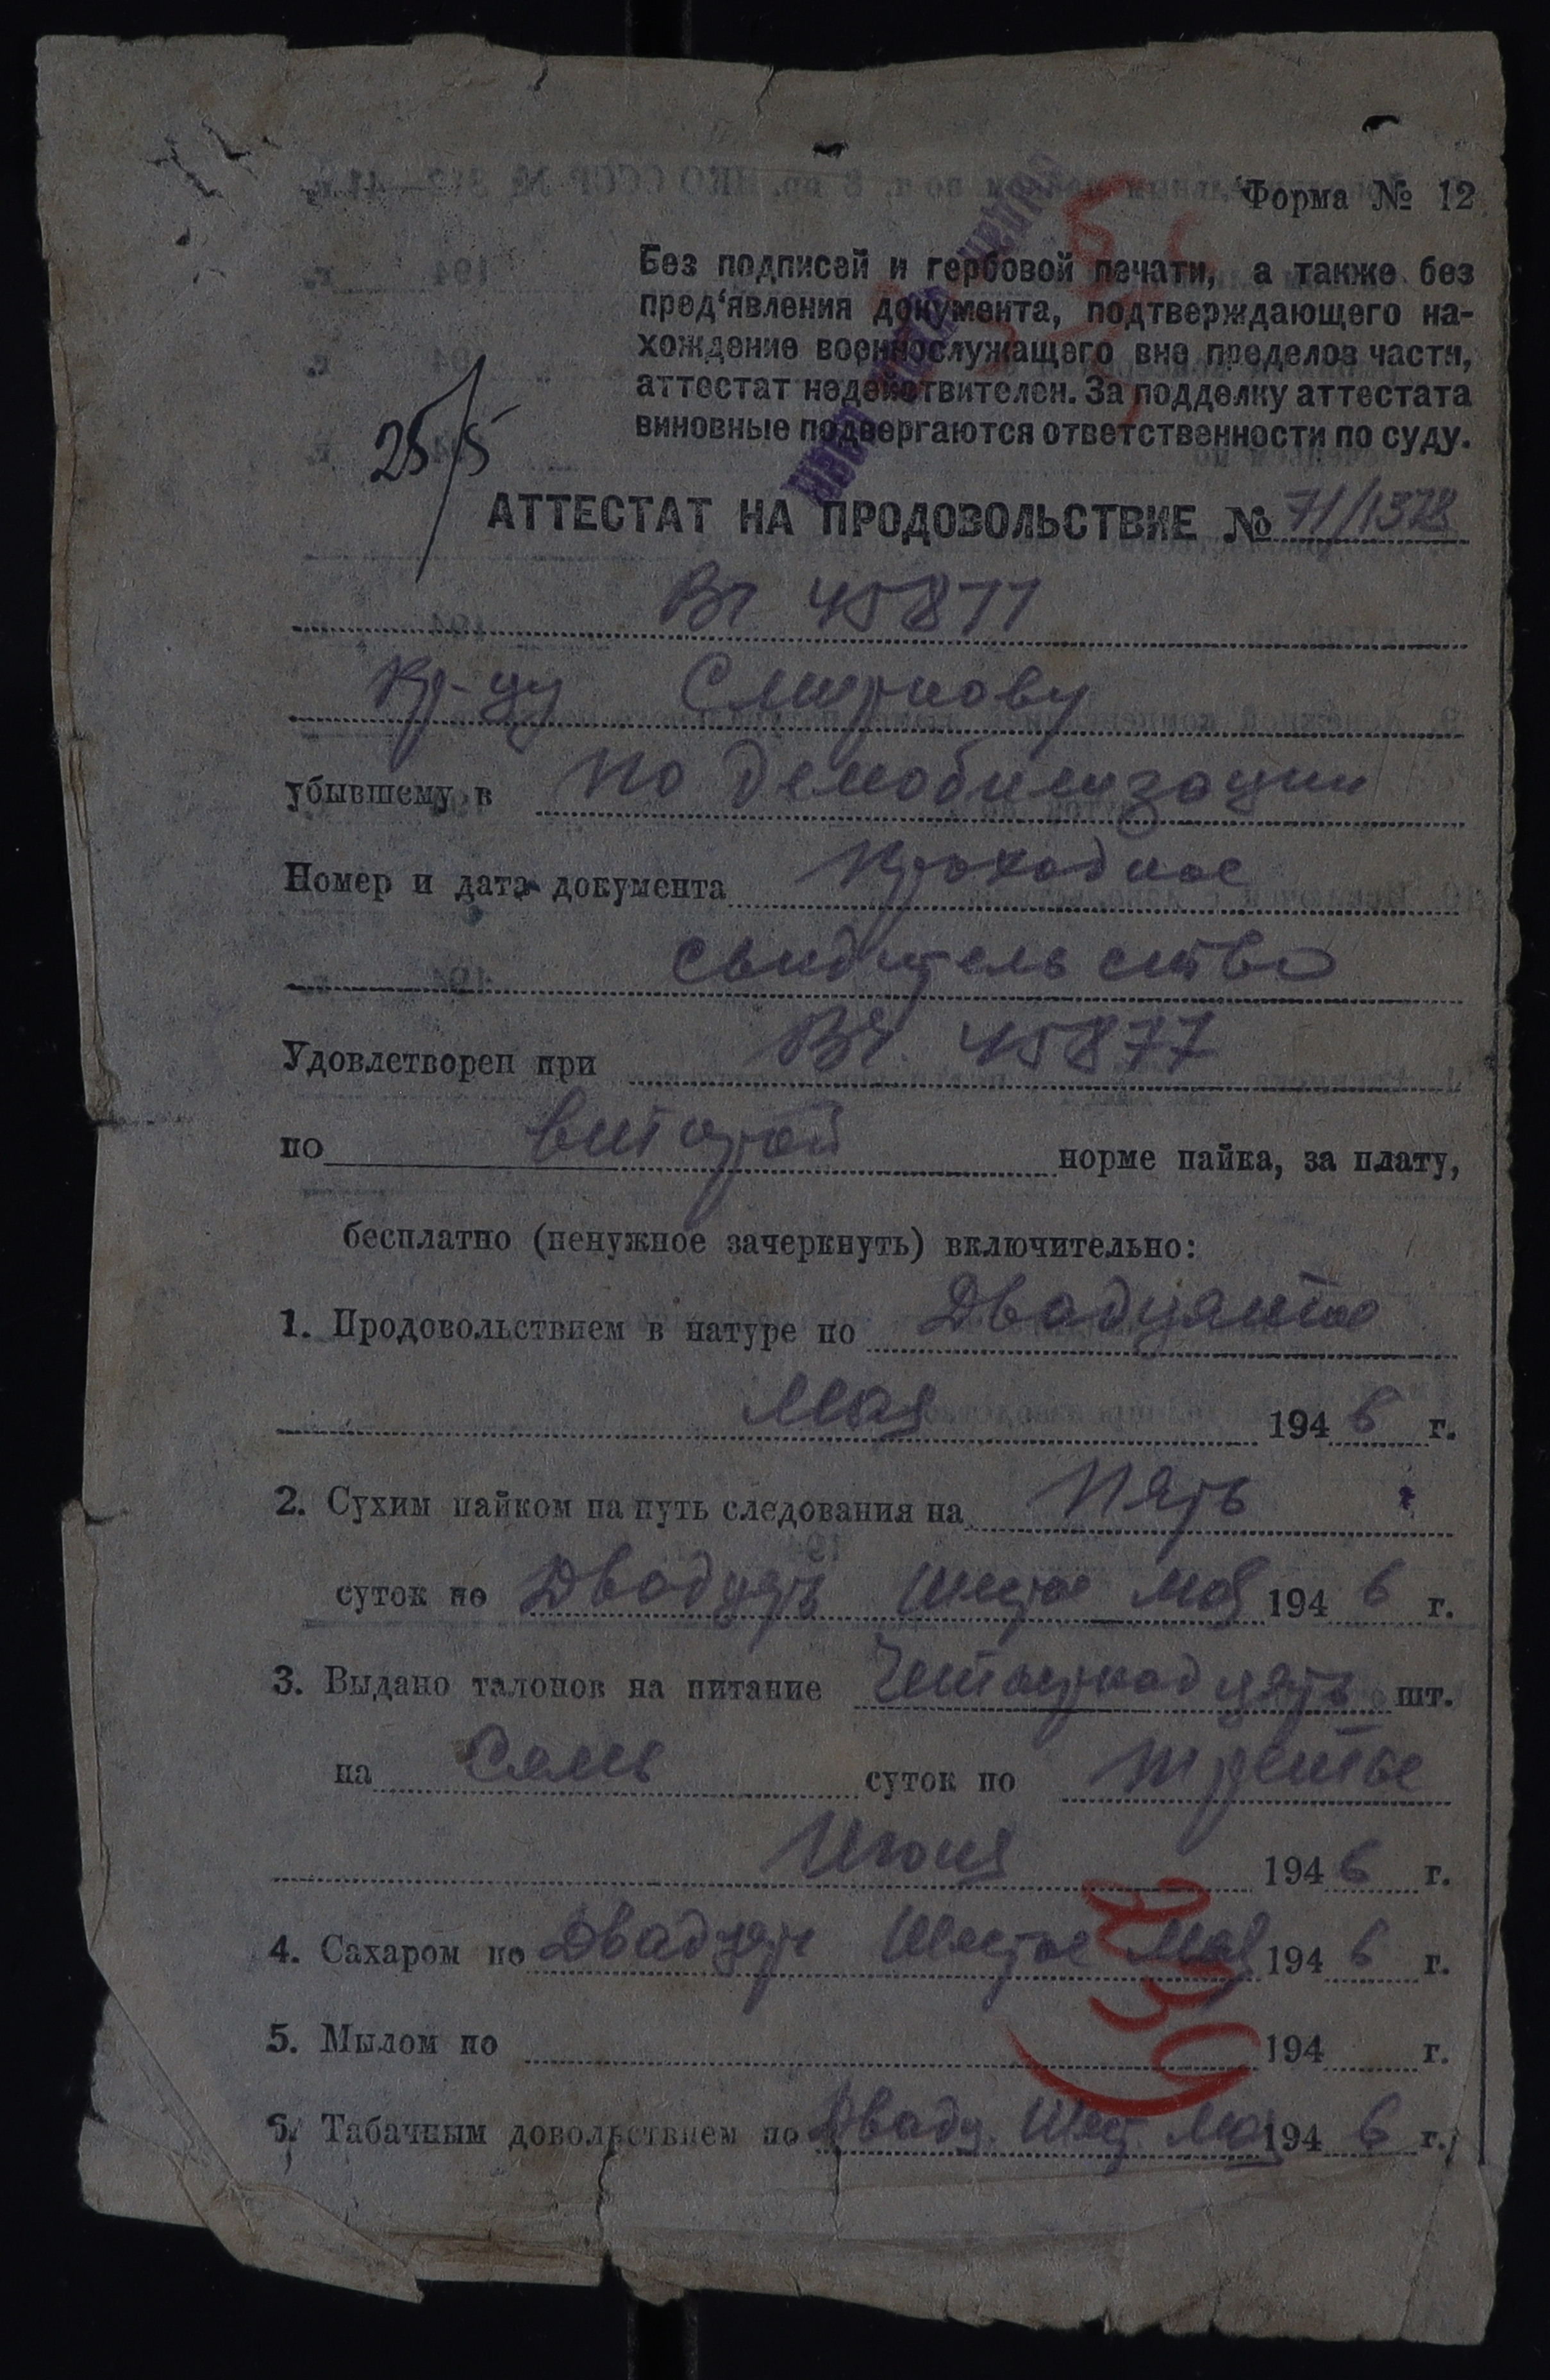 Форма № 12
Без подписей и гербовой печати, а также без
пред‘явления документа, подтверждающего на-
хождение военнослужащего вне пределов части,
аттестат недействителен. За подделку аттестата
виновные подвергаются ответственности по суду.
25/5
АТТЕСТАТ НА ПРОДОВОЛЬСТВИЕ № 71/1378
Вч 45877
Кр-цу Смирнову
убывшему в по демобилизации
Номер и дата документа проходное
свидительство
Удовлетворен при Вч. 45877
по второй норме пайка, за плату,
бесплатно (ненужное зачеркнуть) включительно:
1. Продовольствием в натуре по Двадцятое
Мая 1946 г.
2. Сухим пайком на путь следования на Пять
суток по Двадцять шестое мая 1946 г.
3. Выдано талонов на питание Четырнадцять шт.
на Семь суток по третье
Июня 1946 г.
4. Сахаром по Двадцять Шестое Мая 1946 г.
5. Мылом по 194 г.
6. Табачным довольствием по Двадц. Шест. Мая 1946 г.